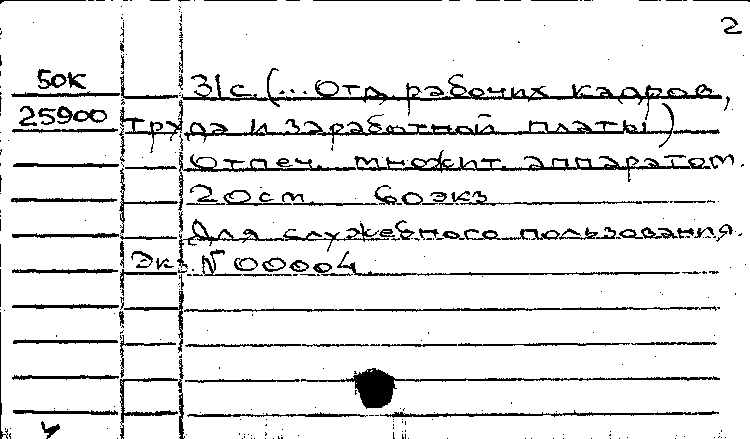 2
50к 31с. (... Отд. рабочих кадров,
25900 труда и заработной платы)
Отпеч. множит. аппаратом.
20см. 60экз
Для служебного пользования.
Экз. N 00004.